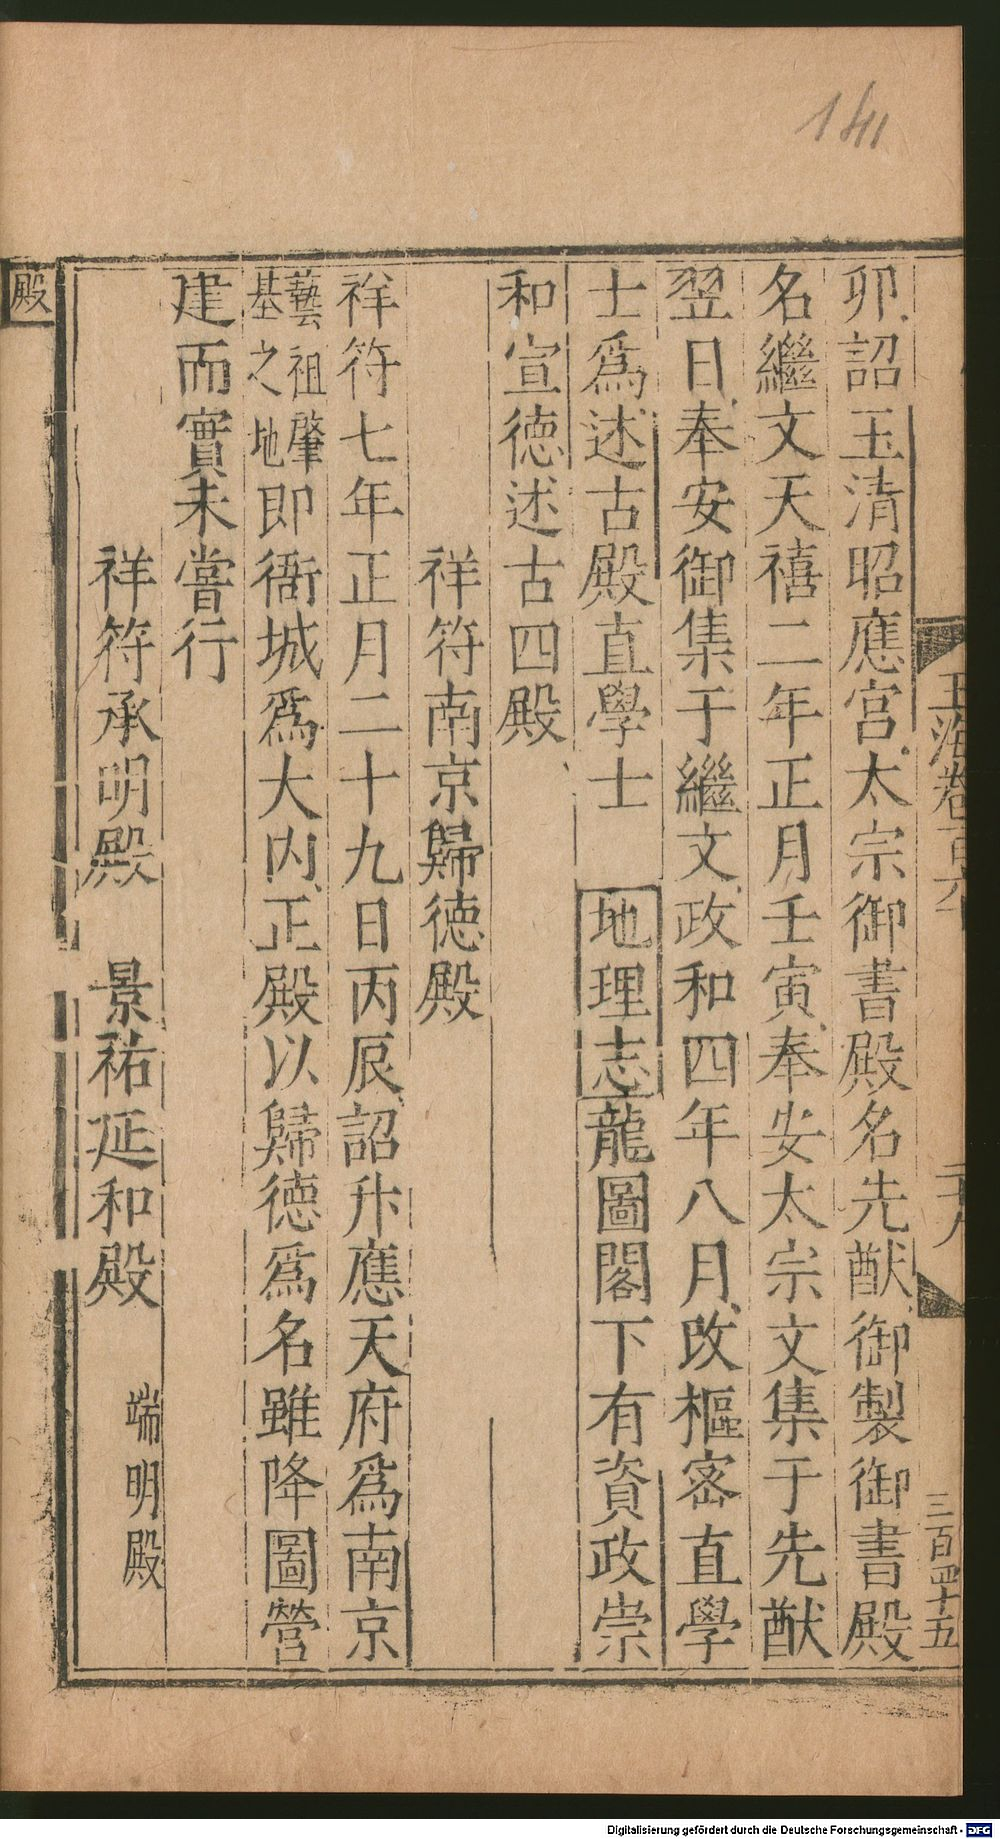 141
玉海卷百六
二十八
三百四十五
卯詔玉清昭應宮太宗御書殿名先猷御製御書殿
名繼文天禧二年正月壬寅奉安太宗文集于先猷
翌日奉安御集于繼文政和四年八月改樞密直學
士爲述古殿直學士 地理志龍圖閣下有資政崇
和宣德述古四殿
祥符南京歸德殿
祥符七年正月二十九日丙辰詔升應天府爲南京
藝祖肇基之地即衙城爲大內正殿以歸德爲名雖降圖營
建而實未嘗行
祥符承明殿 景祐延和殿 端明殿
殿
Digitalisierung gefördert durch die Deutsche Forschungsgemeinschaft - DFG